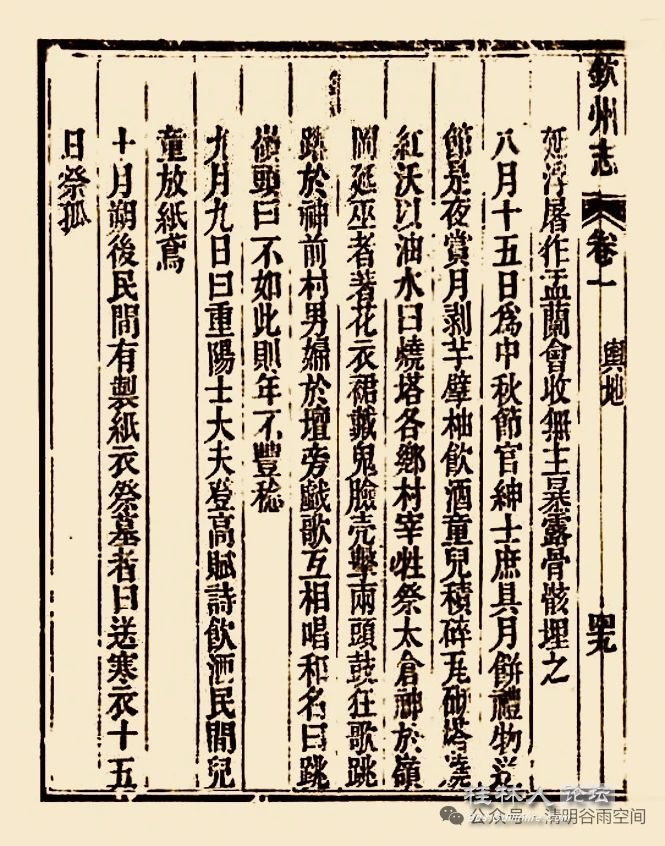 欽州志 卷一 輿地 四九
延浮屠作盂蘭會收無主暴露骨骸埋之
八月十五日爲中秋節官紳士庶具月餅禮物送
節是夜賞月剥芋擘柚飲酒童兒積碎瓦砌塔燒
紅沃以油水曰燒塔各鄉村宰牲祭太倉神於嶺
岡延巫者著花衣裙戴鬼臉壳擊兩頭鼓狂歌跳
躍於神前村男婦於壇旁戲歌互相唱和名曰跳
嶺頭曰不如此則年不豐稔
九月九日曰重陽士大夫登高賦詩飲酒民間兒
童放紙鳶
十月朔後民間有製紙衣祭墓者曰送寒衣十五
日祭孤
桂林人论坛
公众号 清明谷雨空间